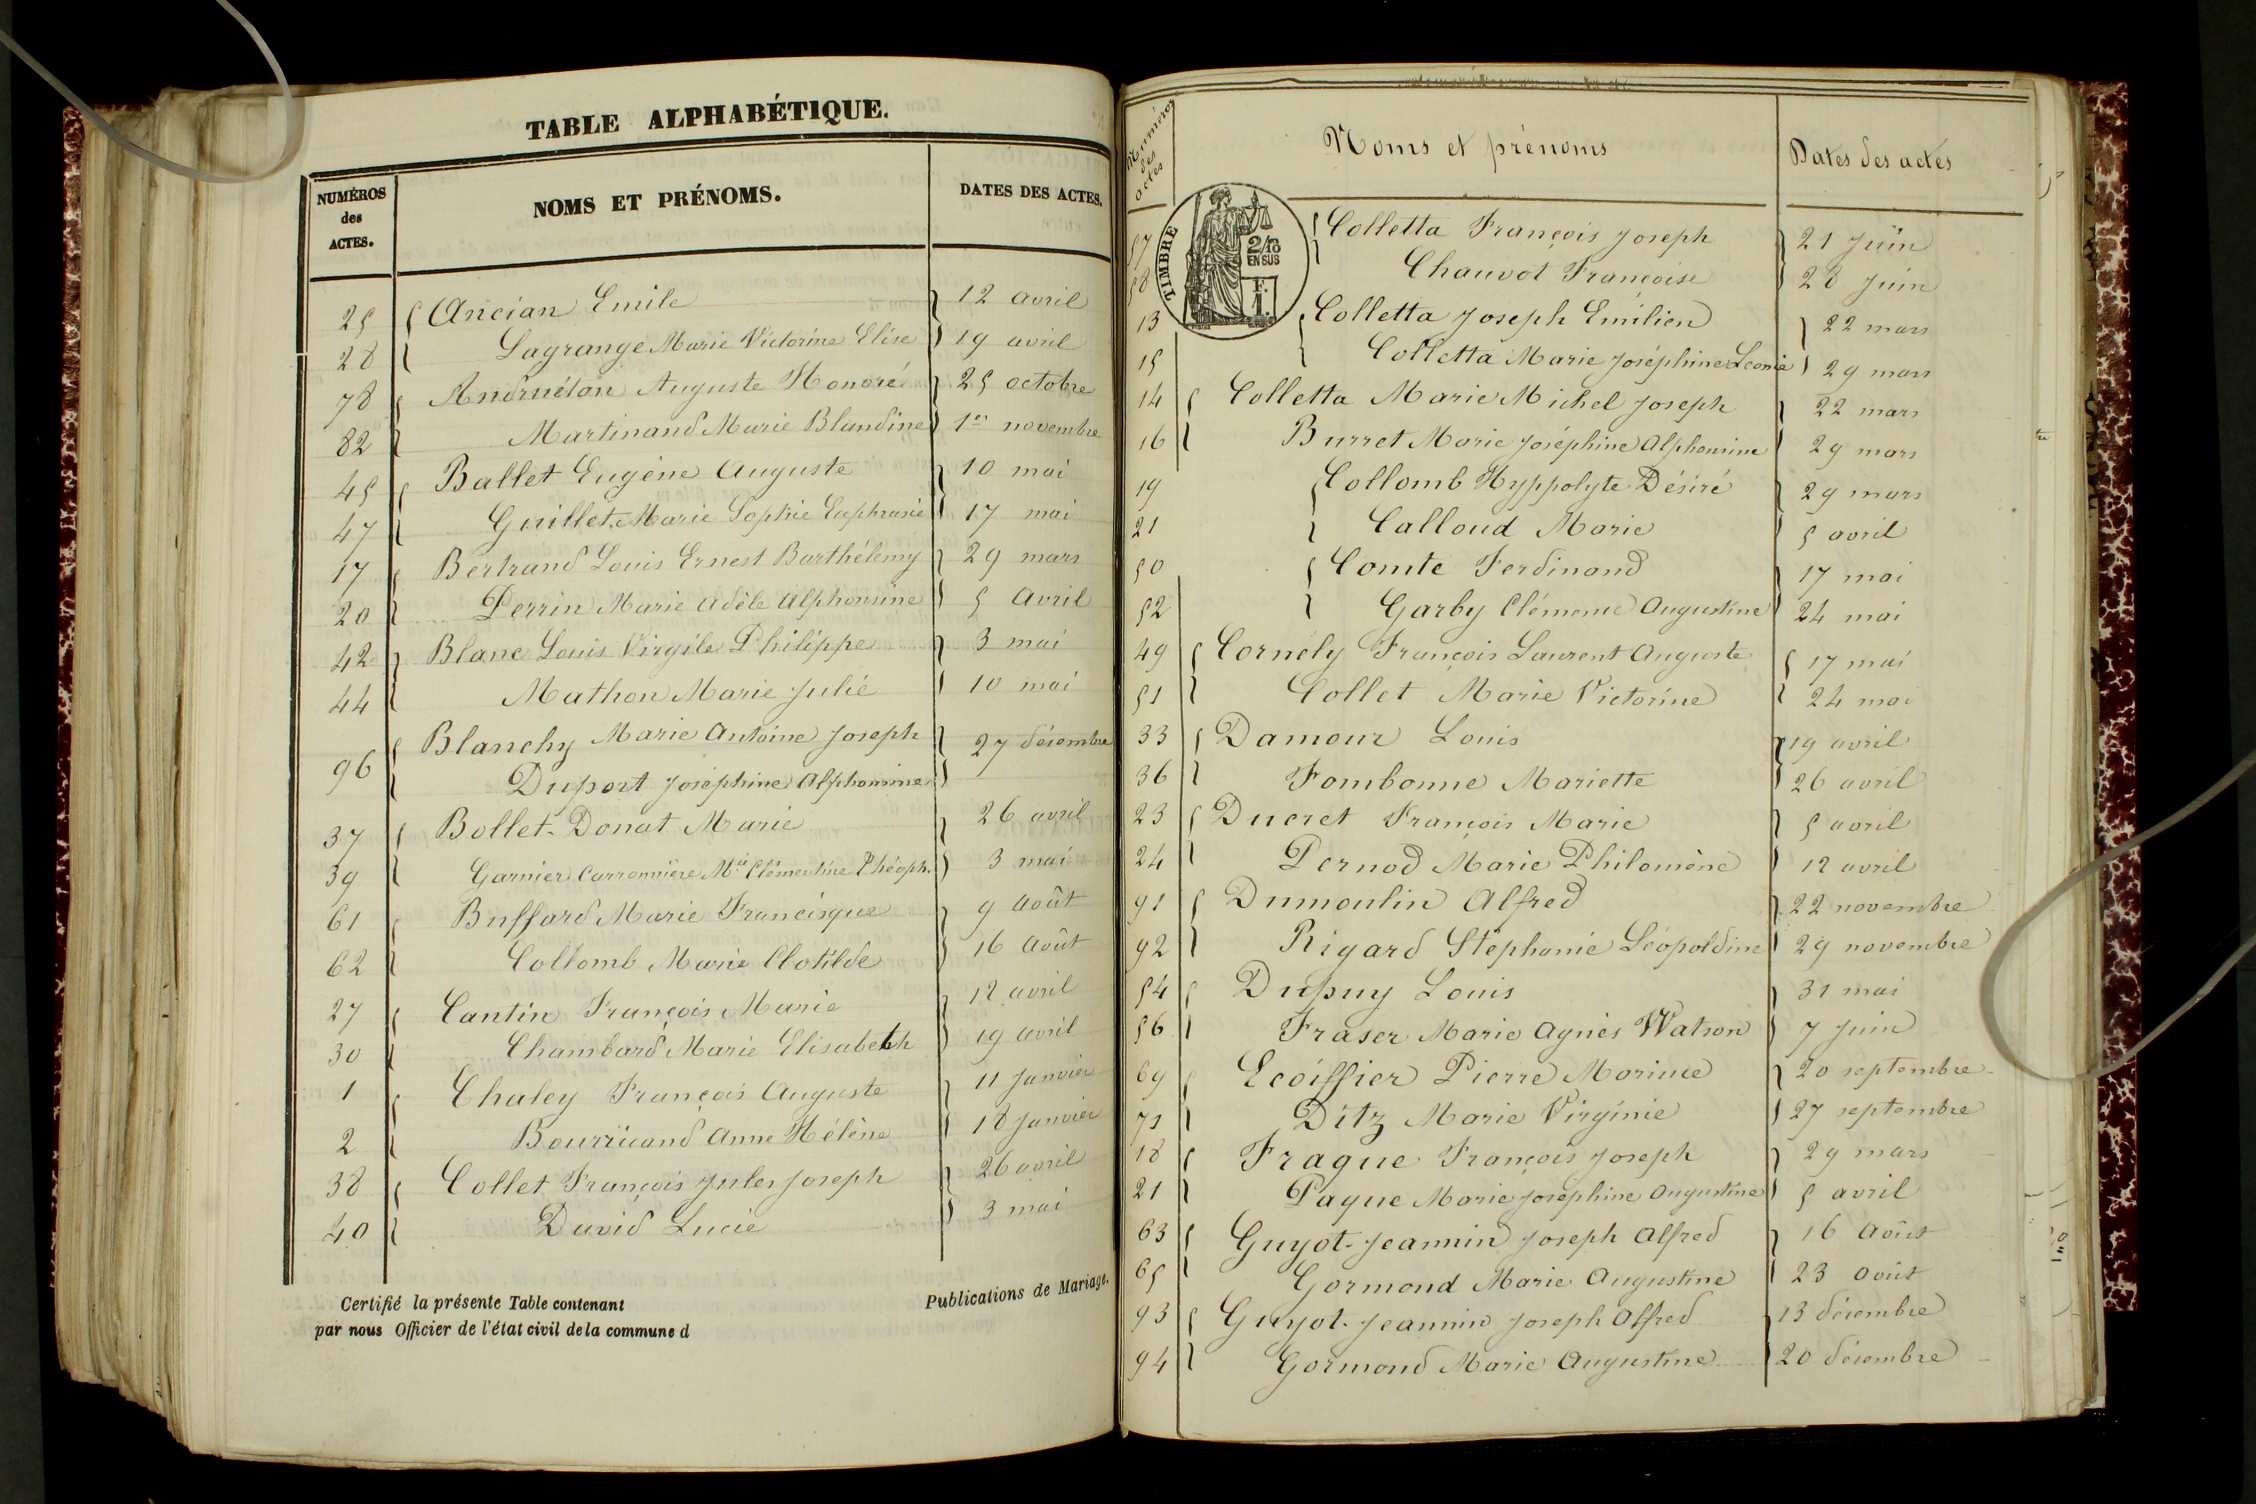 TABLE ALPHABÉTIQUE.
NUMÉROS des ACTES. NOMS ET PRÉNOMS. DATES DES ACTES.
25 Ancian Emile 12 avril
28 Lagrange Marie Victorine Elise 19 avril
78 Andruétan Auguste Honoré 25 octobre
82 Martinand Marie Blandine 1er novembre
45 Ballet Eugène Auguste 10 mai
47 Guillet Marie Sophie Euphrasie 17 mai
17 Bertrand Louis Ernest Barthélemy 29 mars
20 Perrin Marie Adèle Alphonsine 5 Avril
42 Blanc Louis Virgile Philippe 3 mai
44 Mathon Marie Julie 10 mai
Blanchy Marie Antoine Joseph 27 décembre
96 Duport Joséphine Alphonsine
37 Bollet-Donat Marie 26 avril
39 Garnier Carronnière Mie Clémentine Théoph. 3 mai
61 Buffard Marie Francisque 9 Août
62 Collomb Marie Clotilde 16 Août
27 Cantin François Marie 12 avril
30 Chambard Marie Elisabeth 19 avril
1 Chaley François Auguste 11 Janvier
2 Bourricand Anne Hélène 18 Janvier
38 Collet François Jules Joseph 26 avril
40 David Lucie 3 mai
Certifié la présente Table contenant Publications de Mariage.
par nous Officier de l'état civil de la commune d
Numéros des actes Noms et prénoms Dates des actes
TIMBRE
2/10 EN SUS
F. 1.
57 Colletta François Joseph 21 Juin
58 Chauvot Françoise 28 Juin
13 Colletta Joseph Emilien 22 mars
15 Colletta Marie Joséphine Léonie 29 mars
14 Colletta Marie Michel Joseph 22 mars
16 Burret Marie Joséphine Alphonsine 29 mars
19 Collomb Hyppolyte Désiré 29 mars
21 Calloud Marie 5 avril
50 Comte Ferdinand 17 mai
52 Garby Clémence Augustine 24 mai
49 Cornély François Laurent Auguste 17 mai
51 Collet Marie Victorine 24 mai
33 Damour Louis 19 avril
36 Fombonne Mariette 26 avril
23 Ducret François Marie 5 avril
24 Pernod Marie Philomène 12 avril
91 Dumoulin Alfred 22 novembre
92 Rigard Stéphanie Léopoldine 29 novembre
54 Dupuy Louis 31 mai
56 Fraser Marie Agnès Watson 7 Juin
69 Ecoiffier Pierre Marince 20 septembre
71 Ditz Marie Virginie 27 septembre
18 Frague François Joseph 29 mars
21 Paque Marie Joséphine Augustine 5 avril
63 Guyot-Jeannin Joseph Alfred 16 Août
65 Gormond Marie Augustine 23 Août
93 Guyot-Jeannin Joseph Alfred 13 décembre
94 Gormond Marie Augustine 20 décembre